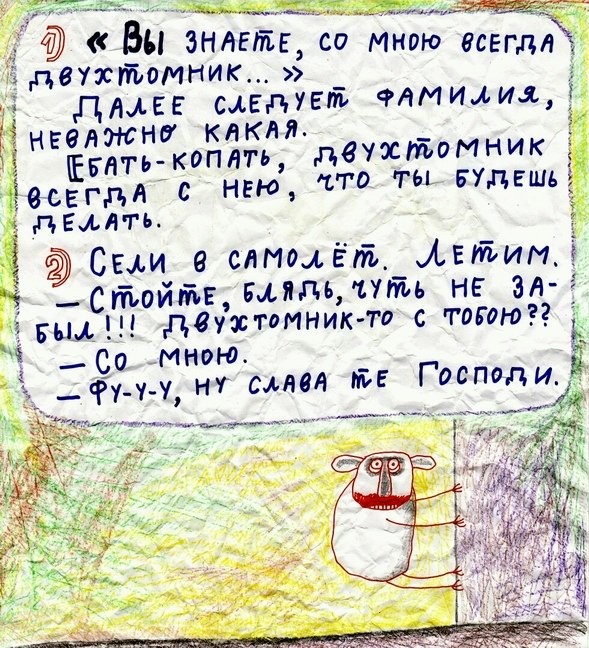 1) « Вы знаете, со мною всегда
двухтомник... »
Далее следует фамилия,
неважно какая.
Ебать-копать, двухтомник
всегда с нею, что ты будешь
делать.
2) Сели в самолёт. Летим.
— Стойте, блядь, чуть не за-
был!!! Двухтомник-то с тобою??
— Со мною.
— Фу-у-у, ну слава те Господи.